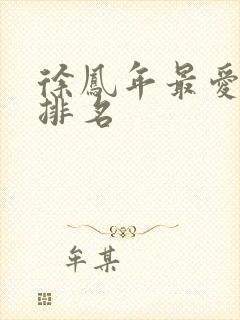 徐鳳年最愛
排名
牟某